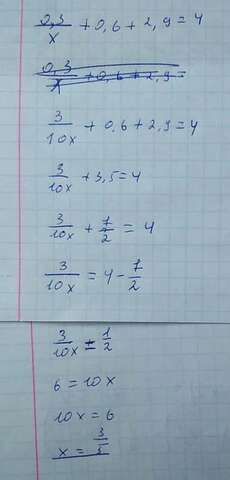 0,3/x + 0,6 + 2,9 = 4
0,3/x + 0,6 + 2,9 =
3/10x + 0,6 + 2,9 = 4
3/10x + 3,5 = 4
3/10x + 7/2 = 4
3/10x = 4 - 7/2
3/10x = 1/2
6 = 10x
10x = 6
x = 3/5